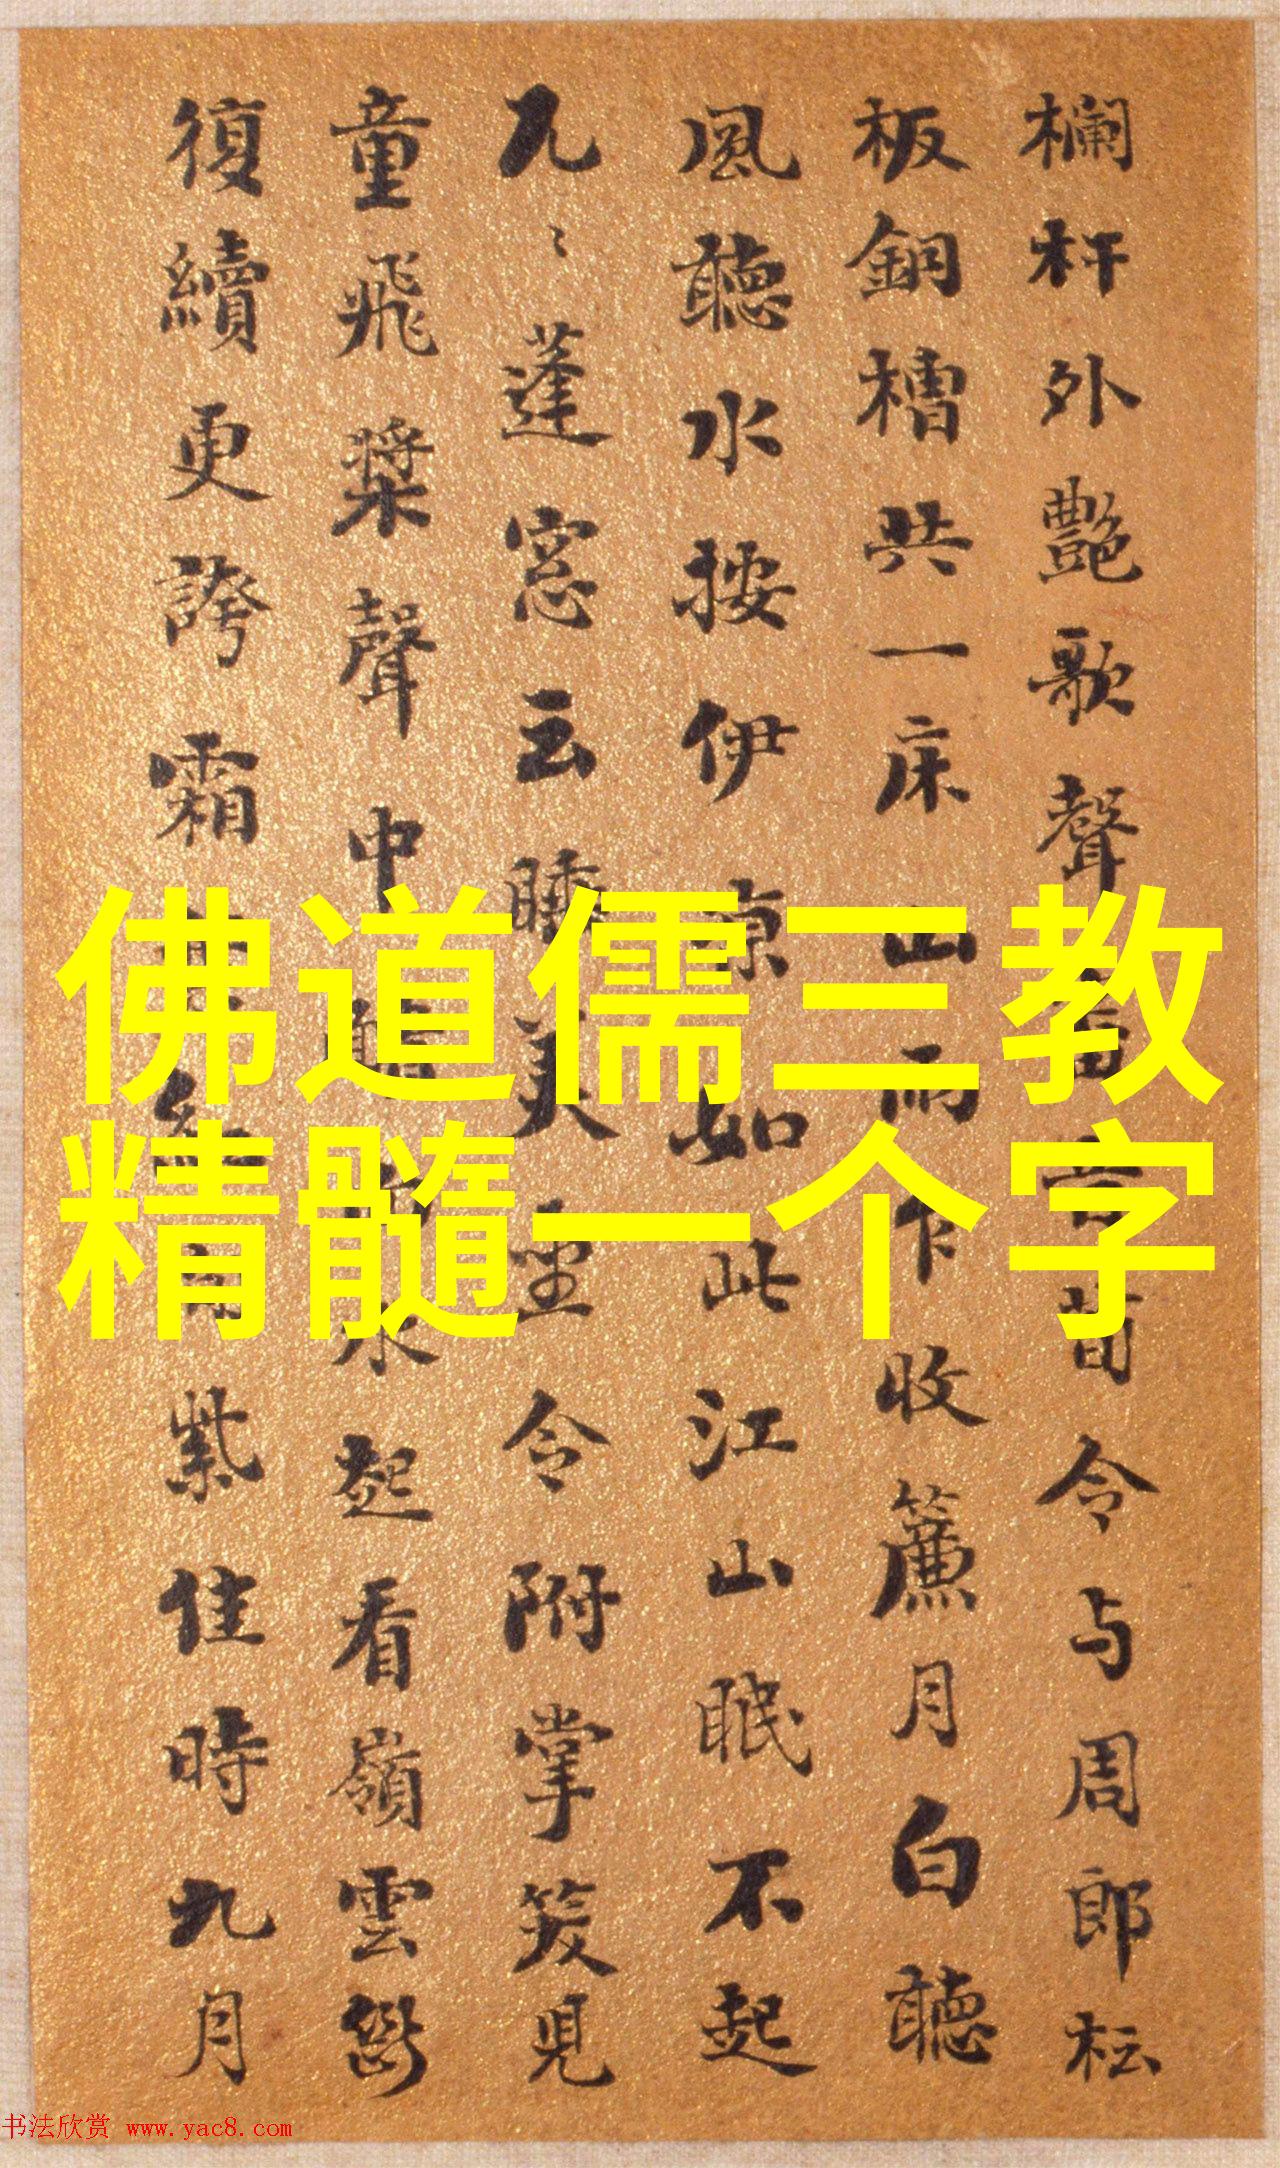 欄杆外艷歌聲
昔令与周郎枟
板銅槽共一床山雨乍收簾月白聽
風聽水按伊涼如此江山眠不起
凡〻蓬窓云睡美坐令附掌笑見
童飛槳聲中
水起看嶺雲
復續更誇霜
紫佳時九月
佛道儒三教
精髓一个字
书法欣赏 www.yac8.com